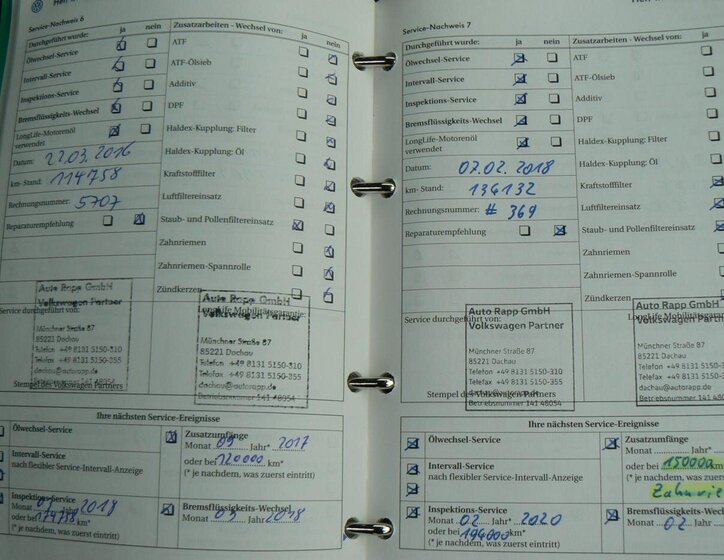 Service-Nachweis 6
Durchgeführt wurde: ja nein
Ölwechsel-Service
Intervall-Service
Inspektions-Service
Bremsflüssigkeits-Wechsel
LongLife-Motorenöl
verwendet
Datum: 22.03.2016
km-Stand: 114758
Rechnungsnummer: 5707
Reparaturempfehlung
Zusatzarbeiten - Wechsel von: ja nein
ATF
ATF-Ölsieb
Additiv
DPF
Haldex-Kupplung: Filter
Haldex-Kupplung: Öl
Kraftstofffilter
Luftfiltereinsatz
Staub- und Pollenfiltereinsatz
Zahnriemen
Zahnriemen-Spannrolle
Zündkerzen
Service durchgeführt von:
LongLife Mobilitätsgarantie:
Auto Rapp GmbH
Volkswagen Partner
Münchner Straße 87
85221 Dachau
Telefon +49 8131 5150-310
Telefax +49 8131 5150-355
Auto Rapp GmbH
Volkswagen Partner
Münchner Straße 87
85221 Dachau
Telefon +49 8131 5150-310
Telefax +49 8131 5150-355
dachau@autorapp.de
Betriebsnummer 141 48054
Stempel des Volkswagen Partners
Ihre nächsten Service-Ereignisse
Ölwechsel-Service
Intervall-Service
nach flexibler Service-Intervall-Anzeige
Inspektions-Service
Monat Jahr 2018
oder bei 174758 km*
(* je nachdem, was zuerst eintritt)
Zusatzumfänge
Monat Jahr* 2017
oder bei 120000 km*
(* je nachdem, was zuerst eintritt)
Bremsflüssigkeits-Wechsel
Monat Jahr 2018
Service-Nachweis 7
Durchgeführt wurde: ja nein
Ölwechsel-Service
Intervall-Service
Inspektions-Service
Bremsflüssigkeits-Wechsel
LongLife-Motorenöl
verwendet
Datum: 07.02.2018
km-Stand: 136132
Rechnungsnummer: # 369
Reparaturempfehlung
Zusatzarbeiten - Wechsel von: ja
ATF
ATF-Ölsieb
Additiv
DPF
Haldex-Kupplung: Filter
Haldex-Kupplung: Öl
Kraftstofffilter
Luftfiltereinsatz
Staub- und Pollenfiltereinsatz
Zahnriemen
Zahnriemen-Spannrolle
Zündkerzen
Service durchgeführt von:
Auto Rapp GmbH
Volkswagen Partner
Münchner Straße 87
85221 Dachau
Telefon +49 8131 5150-310
Telefax +49 8131 5150-355
dachau@autorapp.de
Betriebsnummer 141 48054
Stempel des Volkswagen Partners
Auto Rapp GmbH
Volkswagen Partner
Münchner Straße 87
85221 Dachau
Telefon +49 8131 5150-
Telefax +49 8131 5150-
dachau@autorapp.de
Betriebsnummer 141 480
Ihre nächsten Service-Ereignisse
Ölwechsel-Service
Intervall-Service
nach flexibler Service-Intervall-Anzeige
Inspektions-Service
Monat 02 Jahr* 2020
oder bei 194000 km*
(* je nachdem, was zuerst eintritt)
Zusatzumfänge
Monat Jahr
oder bei 150000
(* je nachdem, was zuerst
Bremsflüssigkeits-We
Monat 02 Jahr